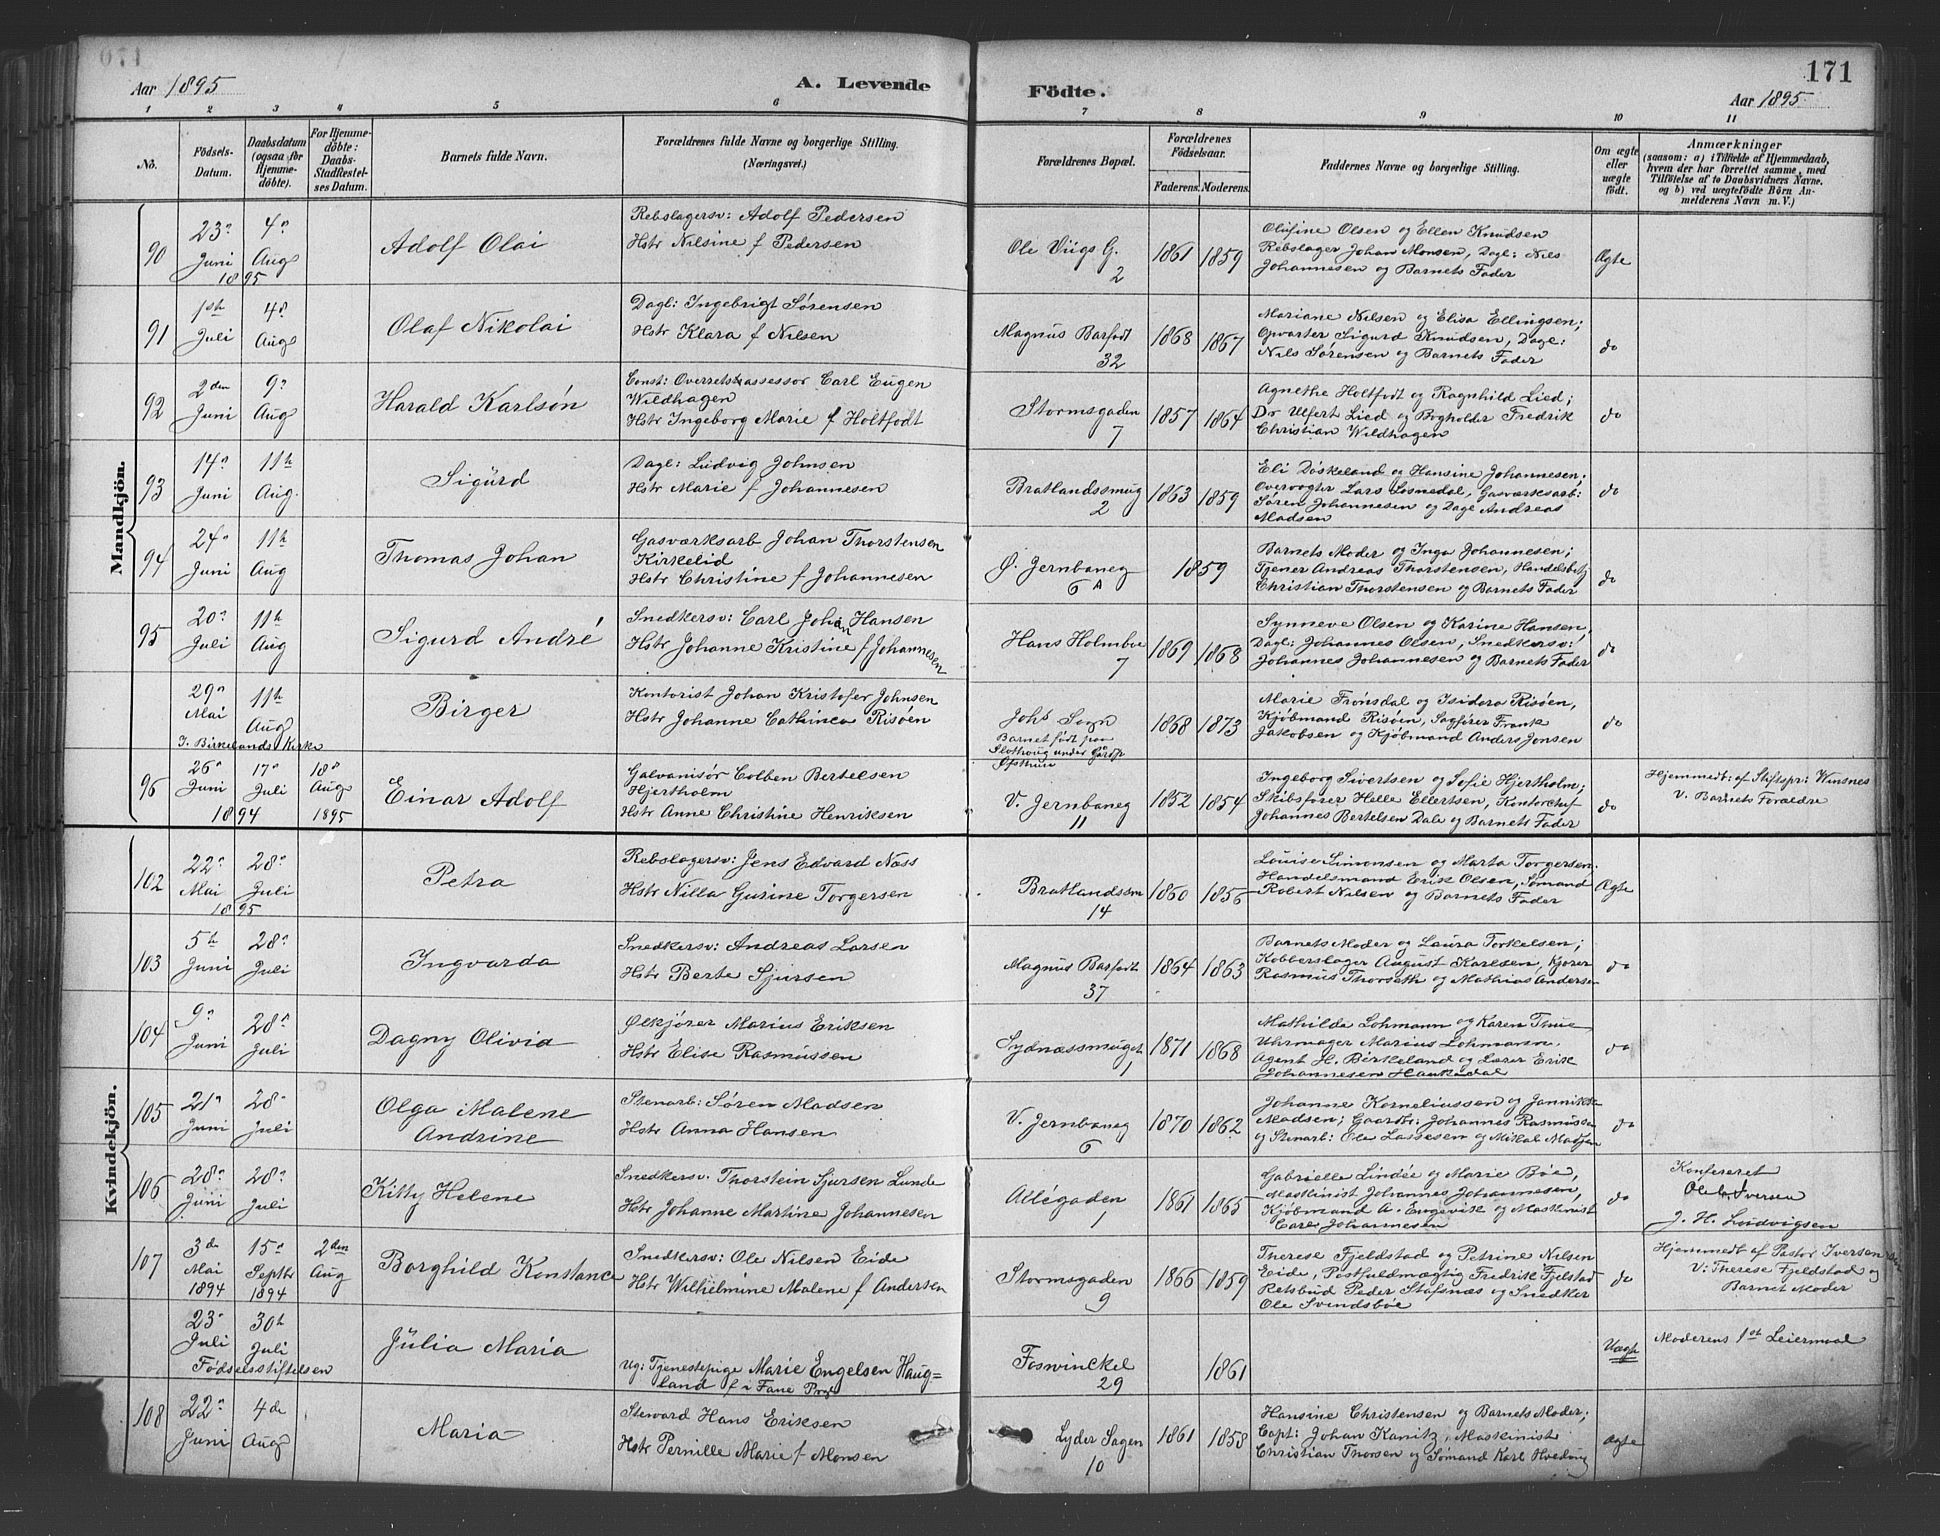 Aar 1895
A. Levende
Födte.
171
Aar 1895
1 2 3 4 5 6 7 8 9 10 11
No.
Födsels-
Datum.
Daabsdatum
(ogsaa for
Hjemme-
döbte).
For Hjemme-
döbte:
Daabs-
Stadfæstel-
ses Datum.
Barnets fulde Navn.
Forældrenes fulde Navne og borgerlige Stilling.
(Næringsvei.)
Forældrenes Bopæl.
Forældrenes
Födselsaar.
Faderens. Moderens.
Faddernes Navne og borgerlige Stilling.
Om ægte
eller
uægte
födt.
Anmærkninger
(saasom: a) i Tilfælde af Hjemmedaab,
hvem der har forrettet samme, med
Tilföielse af to Daabsvidners Navne.
og b) ved uægtefödte Börn An-
melderens Navn m. V.)
Mandkjön.
90
23de Juni 1895
4de Aug
Adolf Olai
Rebslagersv: Adolf Pedersen
Hstr Nilsine f Pedersen
Ole Viigs G.
2
1861 1859
Olufine Olsen og Ellen Knudsen
Rebslager Johan Monsen, Dagl: Nils
Johannesen og Barnets Fader
Ægte
91
1ste Juli
4de Aug
Olaf Nikolai
Dagl: Ingebrigt Sørensen
Hstr Klara f Nilsen
Magnus Barfodt
32
1868 1867
Mariane Nilsen og Elisa Ellingsen;
Opvarter Sigurd Knudsen, Dagl:
Nils Sørensen og Barnets Fader
do
92
2den Juni
9de Aug
Harald Karlsøn
Const: Overretsassessor Carl Eugen
Wildhagen
Hstr Ingeborg Marie f Holtfodt
Stormsgaden
7
1857 1864
Agnethe Holtfodt og Ragnhild Lied;
Dr Ulfert Lied og Bogholder Fredrik
Christian Wildhagen
do
93
14de Juni
11te Aug.
Sigurd
Dagl: Ludvig Johnsen
Hstr Marie f Johannesen
Bratlandssmug
2
1863 1859
Eli Døskeland og Hansine Johannesen;
Overvogter Lars Losnedal, Gasværksarb:
Søren Johannesen og Dagl Andreas
Madsen
do
94
24de Juni
11te Aug
Thomas Johan
Gasværksarb Johan Thorstensen
Kirkelid
Hstr Christine f Johannesen
Ø. Jernbaneg
6 A
1859
Barnets Moder og Inga Johannesen;
Tjener Andreas Thorstensen, Handelsbetj
Christian Thorstensen og Barnets Fader
do
95
20de Juli
11te Aug
Sigurd André
Snedkersv: Carl Johan Hansen
Hstr Johanne Kristine f Johannesen
Hans Holmboe
7
1869 1868
Synneve Olsen og Karine Hansen,
Dagl: Johannes Olsen, Snedkersv:
Johannes Johannesen og Barnets Fader
do
29de Mai
11te Aug
I Birkelands Kirke
Birger
Kontorist Johan Kristofer Johnsen
Hstr Johanne Cathinca Risøen
Johs Sogn
Barnet født paa
Slothoug under Gårdft
Øfsthun
1868 1873
Marie Frønsdal og Isidora Risøen,
Kjøbmand Risøen, Sagfører Frank
Jakobsen og Kjøbmand Anders Jonsen
do
96
26de Juni
17de Juli
1894
18de Aug
1895
Einar Adolf
Galvanisør Colben Bertelsen
Hjertholm
Hstr Anne Christine Henriksen
V. Jernbaneg
11
1852 1854
Ingeborg Sivertsen og Sofie Hjertholm;
Skibsfører Helle Ellertsen, Kontorchef
Johannes Bertelsen Dale og Barnets Fader
do
Hjemmedt: af Stiftspr: Winsnes
V. Barnets Forældre
Kvindekjön.
102
22de Mai 1895
28de Juli
Petra
Rebslagersv: Jens Edvard Næss
Hstr Nilla Gurine Torgersen
Bratlandssm
14
1860 1856
Louise Simonsen og Marta Torgersen.
Handelsmand Erik Olsen, Sømand
Robert Nilsen og Barnets Fader
Ægte
103
5te Juni
28de Juli
Ingvarda
Snedkersv: Andreas Larsen
Hstr Berte Sjursen
Magnus Barfodt
37
1864 1863
Barnets Moder og Laura Torkelsen;
Kobberslager August Karlsen, Kjører
Rasmus Thorseth og Mathias Andersen
do
104
9de Juni
28de Juli
Dagny Olivia
Ølkjører Marius Eriksen
Hstr Elise Rasmussen
Sydnæssmuget
1
1871 1868
Mathilde Lohmann og Karen Thue
Uhrmager Marius Lohmann,
Agent H. Birkeland og Lærer Erik
Johannesen Haukedal
do
105
21de Juni
28de Juli
Olga Malene
Andrine
Stenarb: Søren Madsen
Hstr Anna Hansen
V. Jernbaneg
6
1870 1862
Johanne Korneliussen og Jannikke
Madsen; Gaardbr: Johannes Rasmussen
og Stenarb: Ole Lassesen og Mikal Madsen
do
106
28de Juni
28de Juli
Kitty Helene
Snedkersv. Thorstein Sjursen Lunde
Hstr Johanne Martine Johannesen
Allégaden
1
1861 1865
Gabrielle Lindée og Marie Bøe,
Maskinist Johannes Johannesen,
Kjøbmand A. Engevik og Maskinist
Carl Johannesen
do
Konfereret
Ole Iversen
J. H. Ludvigsen
107
3de Mai 1894
15de Septbr 1894
2den Aug
Borghild Konstance
Snedkersv: Ole Nilsen Eide
Hstr Wilhelmine Malene f Andersen
Stormsgaden
9
1866 1859
Therese Fjeldstad og Petrine Nilsen
Eide, Postfuldmægtig Fredrik Fjelstad
Retsbud Peder Stafsnæs og Snedker
Ole Svindsbøe
do
Hjemmedt af Pastor Iversen
V: Therese Fjeldstad og
Barnet Moder
23de Juli
30te Juli
Fødselsstiftelsen
Julia Maria
Ug: Tjenestepige Marie Engelsen Haug=
land f i Fane Prgj
Foswinckel
29
1861
Uægte
Moderens 1ste Leiermaal
108
22de Juni
4de Aug
Maria
Steward Hans Eriksen
Hstr Pernille Marie f Monsen
Lyder Sagen
10
1861 1858
Hansine Christensen og Barnets Moder;
Capt: Johan Kanitz, Maskinist
Christian Thorsen og Sømand Karl Hveding
Ægte